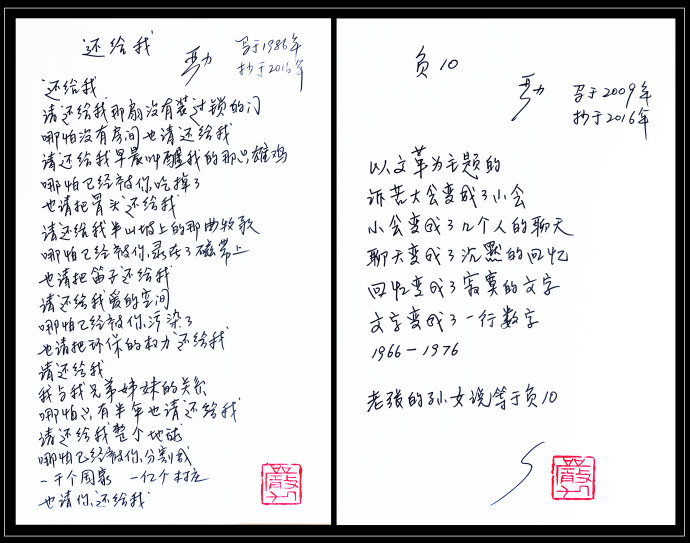 还给我
严力
写于1986年
抄于2016年
还给我
请还给我那扇没有装过锁的门
哪怕没有房间也请还给我
请还给我早晨叫醒我的那只雄鸡
哪怕已经被你吃掉了
也请把骨头还给我
请还给我半山坡上的那曲牧歌
哪怕已经被你录在了磁带上
也请把笛子还给我
请还给我爱的空间
哪怕已经被你污染了
也请把环保的权力还给我
请还给我
我与我兄弟姊妹的关系
哪怕只有半年也请还给我
请还给我整个地球
哪怕已经被你分割成
一千个国家 一亿个村庄
也请你还给我
负10
严力
写于2009年
抄于2016年
以文革为主题的
诉苦大会变成了小会
小会变成了几个人的聊天
聊天变成了沉默的回忆
回忆变成了寂寞的文字
文字变成了一行数字
1966-1976
老张的孙女说等于负10